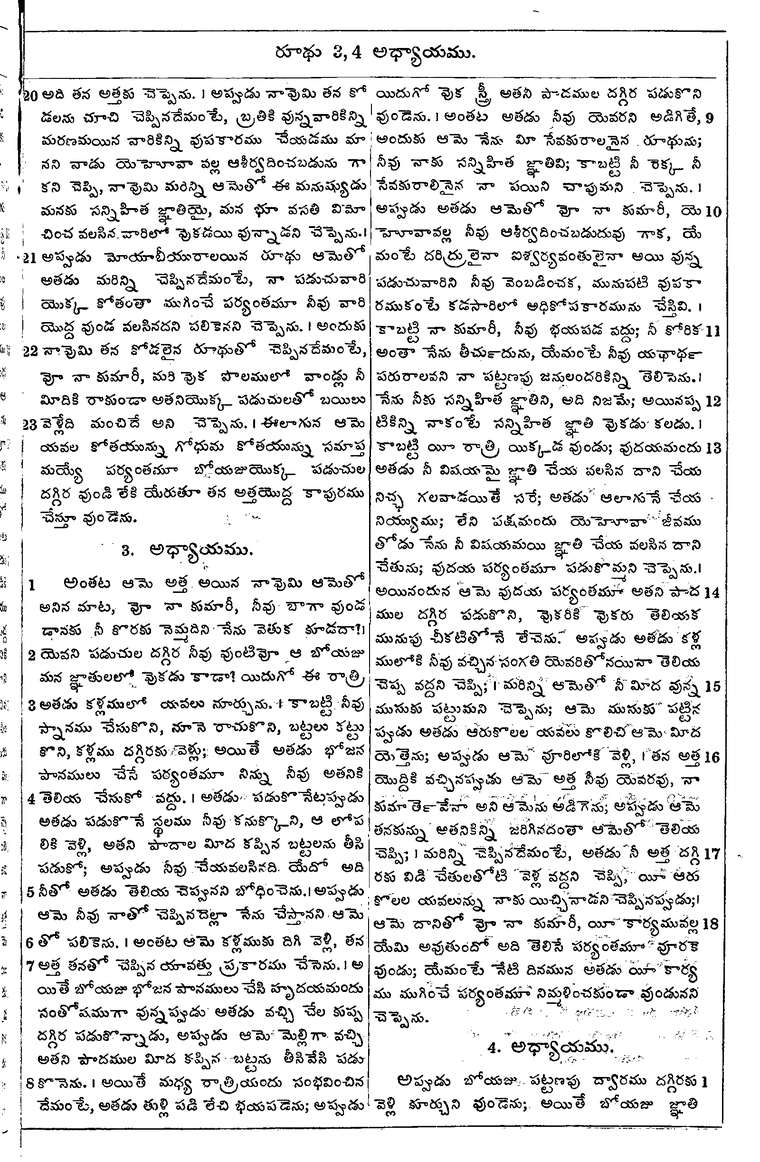 రూథు 3, 4 అధ్యాయము.
20 అది తన అత్తకు చెప్పెను. । అప్పుడు నావొమి తన కో
డలను చూచి చెప్పినదేమంటే, బ్రతికి వున్నవారికిన్ని
మరణమయిన వారికిన్ని వుపకారము చేయడము మా
నని వాడు యెహోవా వల్ల ఆశీర్వదించబడును గా
కని చెప్పి, నావొమి మరిన్ని ఆమెతో ఈ మనుష్యుడు
మనకు సన్నిహిత జ్ఞాతియై, మన భూ వసతి విమో
చించ వలసిన వారిలో వొకడయి వున్నాడని చెప్పెను.।
21 అప్పుడు మోయాబీయురాలయిన రూథు ఆమెతో
అతడు మరిన్ని చెప్పినదేమంటే, నా పడుచువారి
యొక్క కోతంతా ముగించే పర్యంతమూ నీవు వారి
యొద్ద వుండ వలసినదని పలికెనని చెప్పెను. । అందుకు
22 నావొమి తన కోడలైన రూథుతో చెప్పినదేమంటే,
వో నా కుమారీ, మరి వొక పొలములో వాండ్లు నీ
మీదికి రాకుండా అతనియొక్క పడుచులతో బయిలు
23 వెళ్లేది మంచిదే అని చెప్పెను. । ఈలాగున ఆమె
యవల కోతయున్ను గోధుమ కోతయున్ను సమాప్త
మయ్యే పర్యంతమూ బోయజుయొక్క పడుచుల
దగ్గిర వుండి లేకి యేరుతూ తన అత్తయొద్ద కాపురము
చేస్తూ వుండెను.
3. అధ్యాయము.
1 అంతట ఆమె అత్త అయిన నావొమి ఆమెతో
అనిన మాట, వో నా కుమారీ, నీవు బాగా వుండ
డానకు నీ కొరకు నెమ్మదిని నేను వెతుక కూడదా?।
2 యెవని పడుచుల దగ్గిర నీవు వుంటివో ఆ బోయజు
మన జ్ఞాతులలో వొకడు కాడా? యిదుగో ఈ రాత్రి
3 అతడు కళ్లములో యవలు నూర్చును. । కాబట్టి నీవు
స్నానము చేసుకొని, నూనె రాచుకొని, బట్టలు కట్టు
కొని, కళ్లము దగ్గిరకు వెళ్లు; అయితే అతడు భోజన
పానములు చేసే పర్యంతమూ నిన్ను నీవు అతనికి
4 తెలియ చేనుకో వద్దు. । అతడు పడుకొనేటప్పుడు
అతడు పడుకొనే స్థలము నీవు కనుక్కొని, ఆ లోప
లికి వెళ్లి, అతని పాదాల మీద కప్పిన బట్టలను తీసి
పడుకో; అప్పుడు నీవు చేయవలసినది యేదో అది
5 నీతో అతడు తెలియ చెప్పునని బోధించెను.। అప్పుడు
ఆమె నీవు నాతో చెప్పినదెల్లా నేను చేస్తానని ఆమె
6 తో పలికెను. । అంతట ఆమె కళ్లముకు దిగి వెళ్లి, తన
7 అత్త తనతో చెప్పిన యావత్తు ప్రకారము చేసెను. । అ
యితే బోయజు భోజన పానములు చేసి హృదయమందు
సంతోషముగా వున్నప్పుడు అతడు వచ్చి చేల కుప్ప
దగ్గిర పడుకొన్నాడు, అప్పుడు ఆమె మెల్లిగా వచ్చి
అతని పాదముల మీద కప్పిన బట్టను తీసివేసి పడు
8 కొనెను. । అయితే మధ్య రాత్రియందు సంభవించిన
దేమంటే, అతడు తుళ్లి పడి లేచి భయపడెను; అప్పుడు
యిదుగో వొక స్త్రీ అతని పాదముల దగ్గిర పడుకొని
వుండెను. । అంతట అతడు నీవు యెవరని అడిగితే, 9
అందుకు ఆమె నేను మీ సేవకురాలనైన రూథును;
నీవు నాకు సన్నిహిత జ్ఞాతివి; కాబట్టి నీ రెక్క నీ
సేవకురాలినైన నా పయిని చాపుమని చెప్పెను. ।
అప్పుడు అతడు ఆమెతో వో నా కుమారీ, యె 10
హోవావల్ల నీవు ఆశీర్వదించబడుదువు గాక, యే
మంటే దరిద్రులైనా ఐశ్వర్యవంతులైనా అయి వున్న
పడుచువారిని నీవు వెంబడించక, మునుపటి వుపకా
రముకంటే కడసారిలో అధికోపకారమును చేస్తివి. ।
కాబట్టి నా కుమారీ, నీవు భయపడ వద్దు; నీ కోరిక 11
అంతా నేను తీర్చుదును, యేమంటే నీవు యథార్థ
పరురాలవని నా పట్టణపు జనులందరికిన్ని తెలిసెను.।
నేను నీకు సన్నిహిత జ్ఞాతిని, అది నిజమే; అయినప్ప 12
టికిన్ని నాకంటే సన్నిహిత జ్ఞాతి వొకడు కలడు. ।
కాబట్టి యీ రాత్రి యిక్కడ వుండు; వుదయమందు 13
అతడు నీ విషయమై జ్ఞాతి చేయ వలసిన దాని చేయ
నిచ్ఛ గలవాడయితే సరే; అతడు ఆలాగునే చేయ
నియ్యుము; లేని పక్షమందు యెహోవా జీవము
తోడు నేను నీ విషయమయి జ్ఞాతి చేయ వలసిన దాని
చేతును; వుదయ పర్యంతమూ పడుకొమ్మని చెప్పెను.।
అయినందున ఆమె వుదయ పర్యంతమూ అతని పాద 14
ముల దగ్గిర పడుకొని, వొకరికి వొకరు తెలియక
మునుపు చీకటితోనే లేచెను. అప్పుడు అతడు కళ్ల
ములోకి నీవు వచ్చిన సంగతి యెవరితోనయినా తెలియ
చెప్ప వద్దని చెప్పి; । మరిన్ని ఆమెతో నీ మీద వున్న 15
ముసుకు పట్టుమని చెప్పెను; ఆమె ముసుకు పట్టిన
ప్పుడు అతడు ఆరుకొలల యవలు కొలిచి ఆమె మీద
యెత్తెను; అప్పుడు ఆమె వూరిలోకి వెళ్లి, । తన అత్త 16
యొద్దికి వచ్చినప్పుడు ఆమె అత్త నీవు యెవరవు, నా
కుమార్తెవేనా అని ఆమెను అడిగెను; అప్పుడు ఆమె
తనకున్ను అతనికిన్ని జరిగినదంతా ఆమెతో తెలియ
చెప్పి; । మరిన్ని చెప్పినదేమంటే, అతడు నీ అత్త దగ్గి 17
రకు విడి చేతులతోటి వెళ్ల వద్దని చెప్పి, యీ ఆరు
కొలల యవలున్ను నాకు యిచ్చినాడని చెప్పినప్పుడు;।
ఆమె దానితో వో నా కుమారీ, యీ కార్యమువల్ల 18
యేమి అవుతుందో అది తెలిసే పర్యంతమూ వూరకె
వుండు; యేమంటే నేటి దినమున అతడు యీ కార్య
ము ముగించే పర్యంతమూ నిమ్మళించకుండా వుండునని
చెప్పెను.
4. అధ్యాయము.
అప్పుడు బోయజు పట్టణపు ద్వారము దగ్గిరకు 1
వెళ్లి కూర్చుని వుండెను; అయితే బోయజు జ్ఞాతి